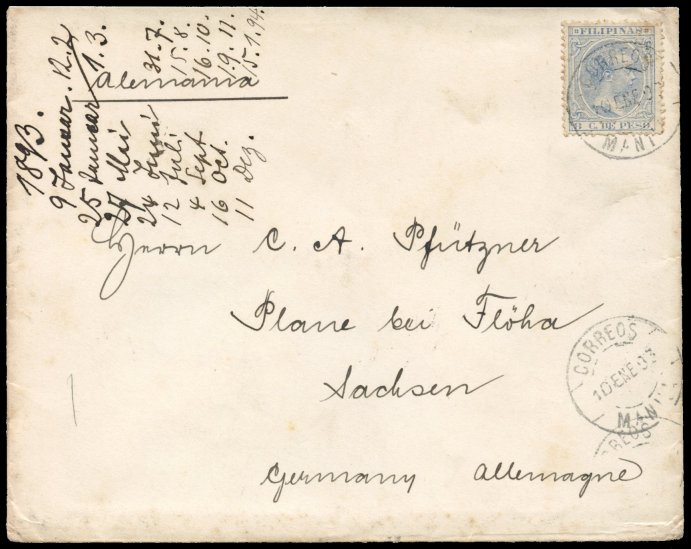 1893.
9 Januar. N. 2
25 Januar 1. 3.
27 Mai
24 Juni 31. 7.
12 Juli 15. 8.
4 Sept 16. 10.
16 Oct. 19. 11.
11 Dez. 15. 1. 94.
Alemania
FILIPINAS
8 C. DE PESO
CORREOS
10 ENE 93
MANI
Herrn C. A. Pfützner
Plane bei Flöha
Sachsen
Germany Allemagne
CORREOS
10 ENE 93
MANI
REOS